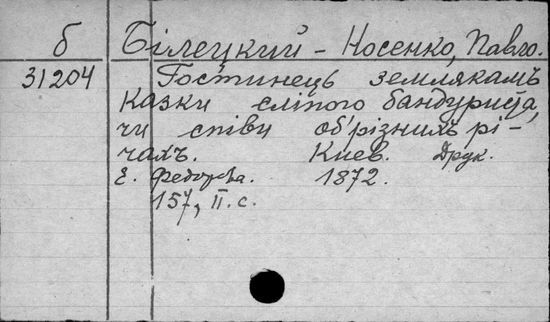 б Білецкий - Носенко, Павло.
31204 Гостинець землякамъ
Казки сліпого бандуриста,
чи співи об'різнихъ рі-
чахъ. Киев. Друк.
Е. Федорова. 1872.
157, II. с.